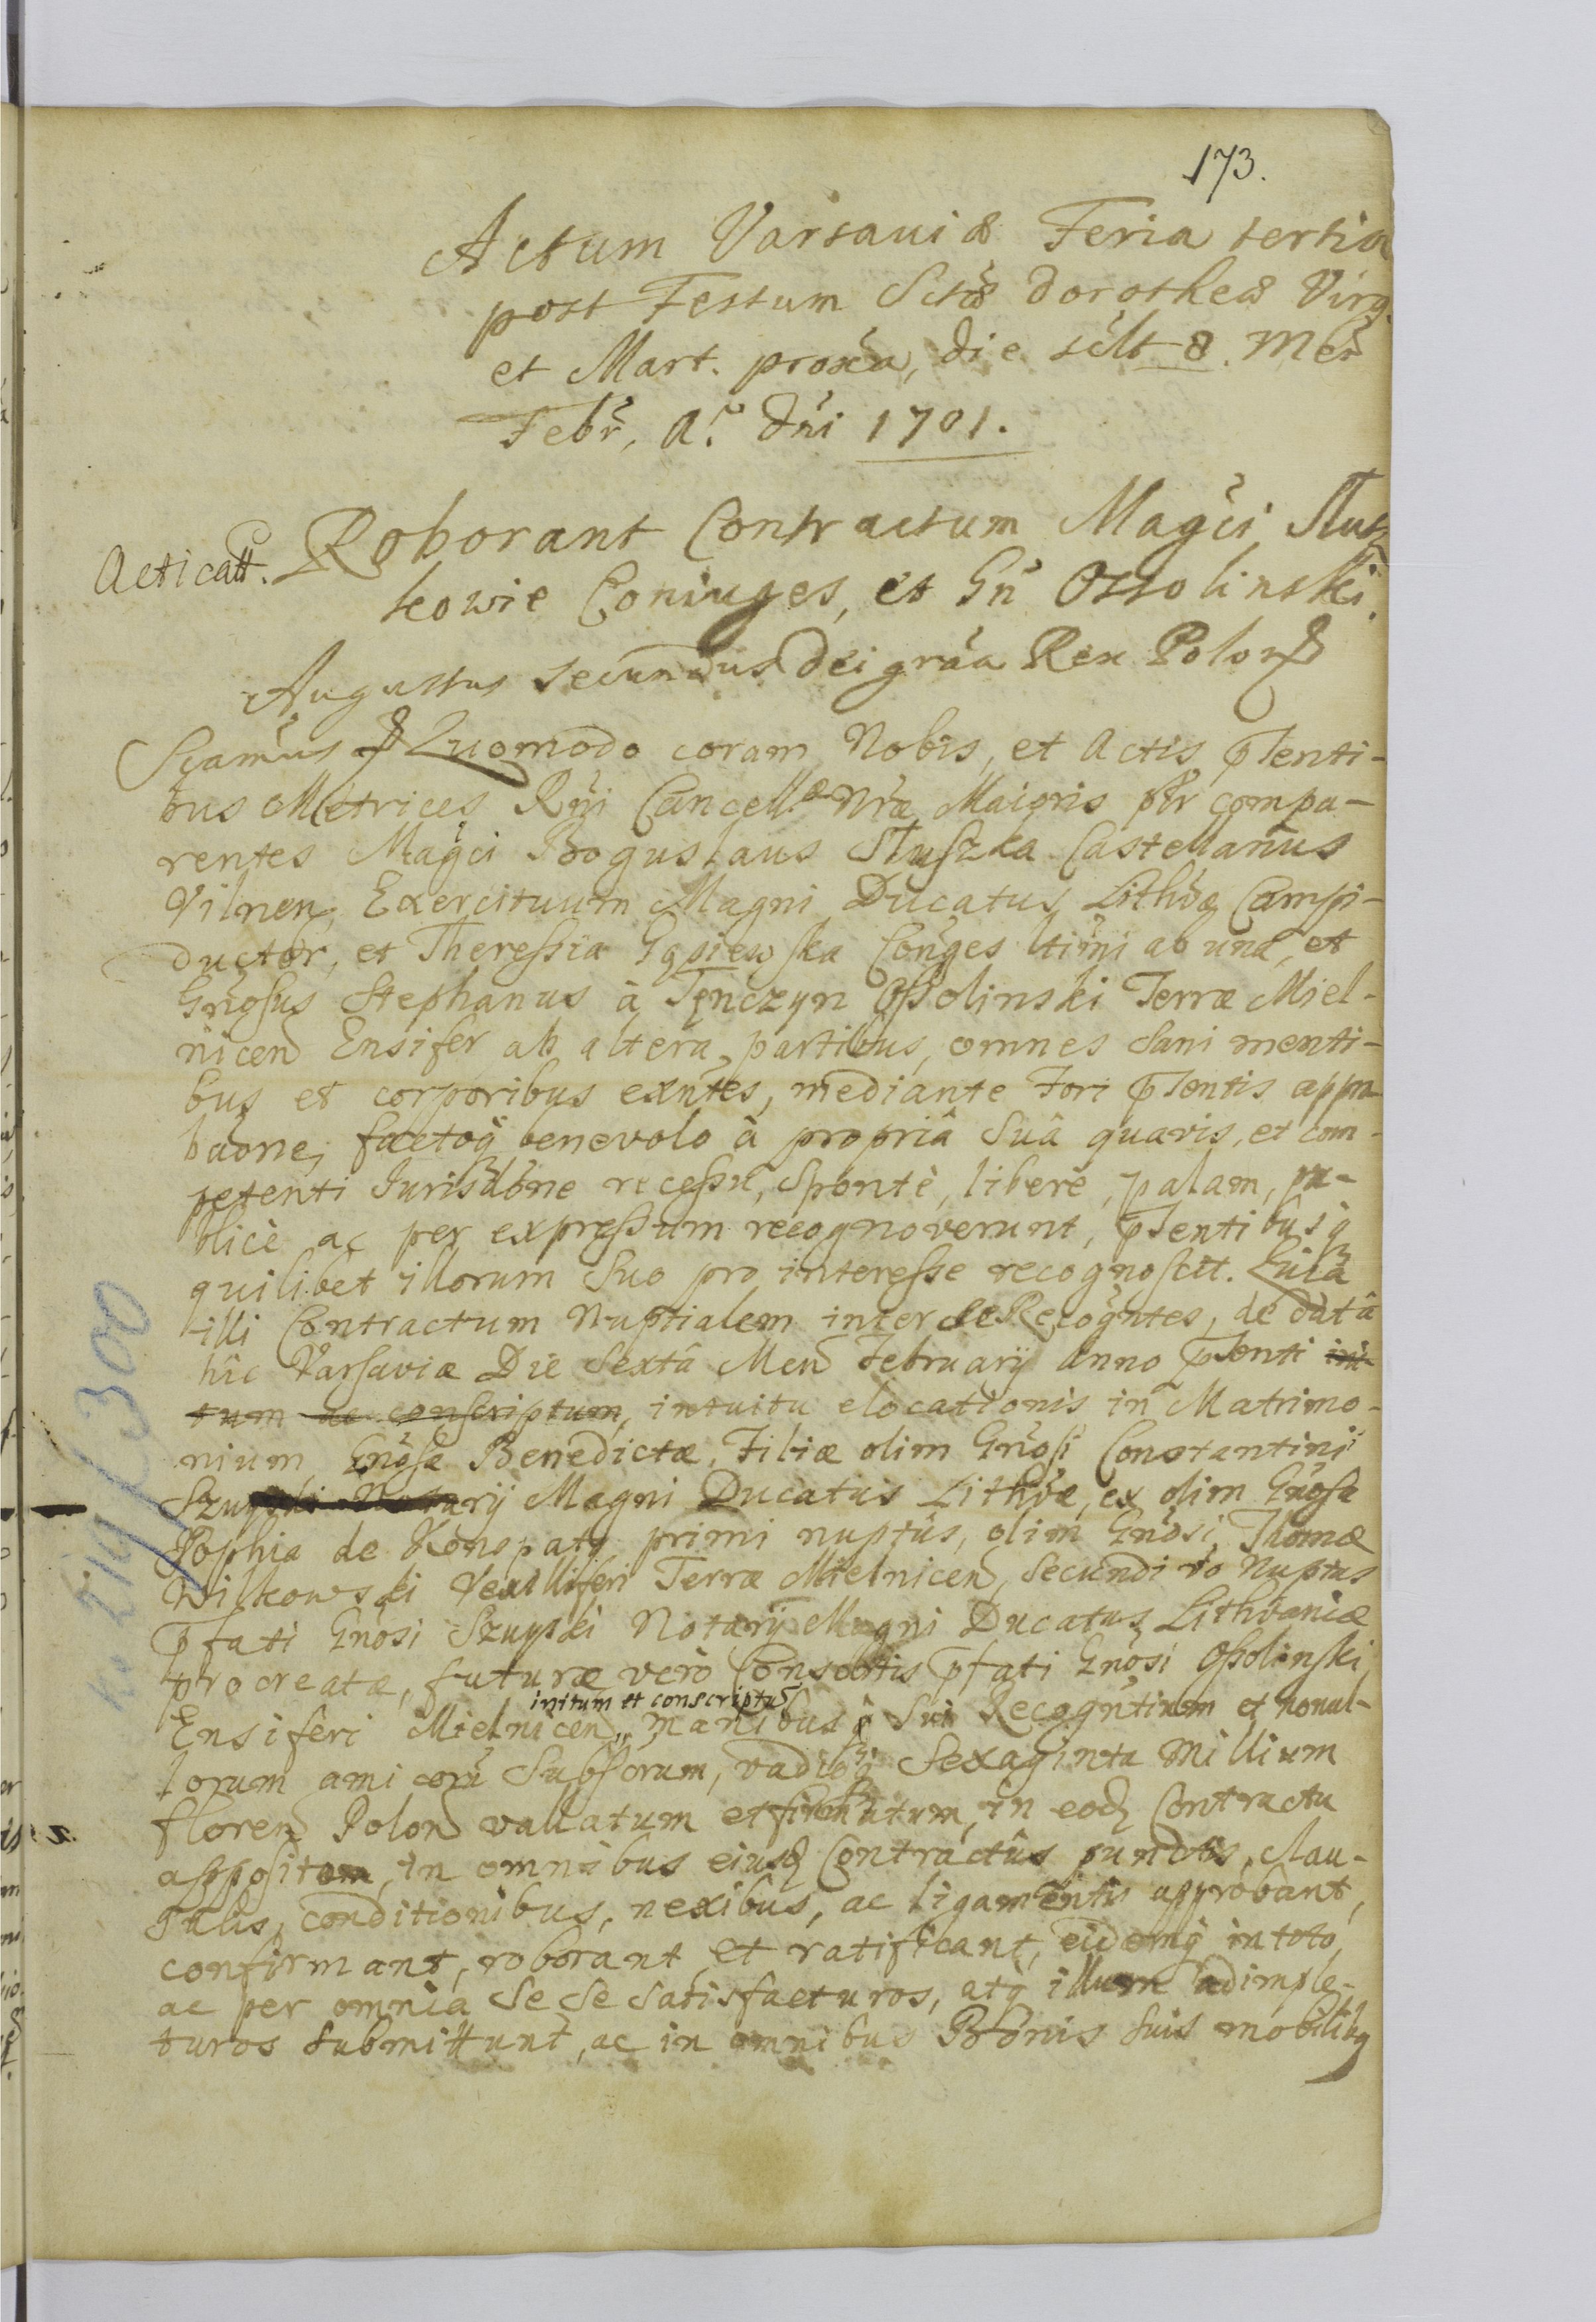 173.
Actum Varsauiæ Feria tertia
post Festum Sctæ Dorotheæ Virg.
et Mart. proxa, die scilt 8. Mens
Febr, A.º Dni 1701.
Acticatt.
Roborant Contractum Magci Słusz
kowie Coniuges, et Gn Ossolinski.
Augustus Secundus Dei graa Rex Polon
Scamus Quomodo coram Nobis, et Actis pñsenti-
bus Metrices Rñi Cancellæ Nræ Maioris pñr compa-
rentes Magci Boguslaus Słuszka Castellanus
Vilnen, Exercituum Magni Ducatus Lithvæ Campi-
ductor, et Theressia Gąsiewska Conges ltimi ab una, et
Gnosus Stephanus à Tęnczyn Ossolinski Terræ Miel-
nicen Ensifer ab altera, partibus, omnes Sani menti-
bus et corporibus exntes, mediante Fori pñsentis appro
baone, factoq benevolo à propriâ Suâ quavis, et com-
petenti Jurisdone recessu, Spontè, liberè, palam, pu-
blicè ac per expressum recognoverunt, pñsentibusq
quilibet illorum Suo pro interesse recognoscit. Quia
illi Contractum Nuptialem inter se Recogntes, de datâ
hîc Varsaviæ Die Sextâ Men February Anno pñsenti ini-
tum ac conscriptum, intuitu elocationis in Matrimo-
nium Gnosæ Benedictæ, Filiæ olim Gnosi Constantini
Szuyski Notarij Magni Ducatus Lithvæ, ex olim Gnosa
Sophia de Konopaty primi nuptus, olim Gnosi Thomæ
Wilkowski Vexilliferi Terræ Mielnicen, Secundi vo Nuptus
pfati Gnosi Szuyski Notarij Magni Ducatus Lithvaniæ
procreatæ, futuræ verò Consortis pfati Gnosi Ossolinski
initum et conscriptum
Ensiferi Mielnicen, manibus Sui Recogntium et nonul-
lorum amicoru Subscrum, vadioq Sexaginta Millium
floren Polon vallatum et firmatum, in eod Contractu
appositum, in omnibus eiusd Contractûs punctis, clau-
sulis, conditionibus, nexibus, ac ligamentis approbant,
confirmant, roborant et ratificant, eidemq in toto,
ac per omnia Se Se Satisfacturos, atq illum adimple-
turos Submittunt, ac in omnibus Bonis Suis mobilibq
300